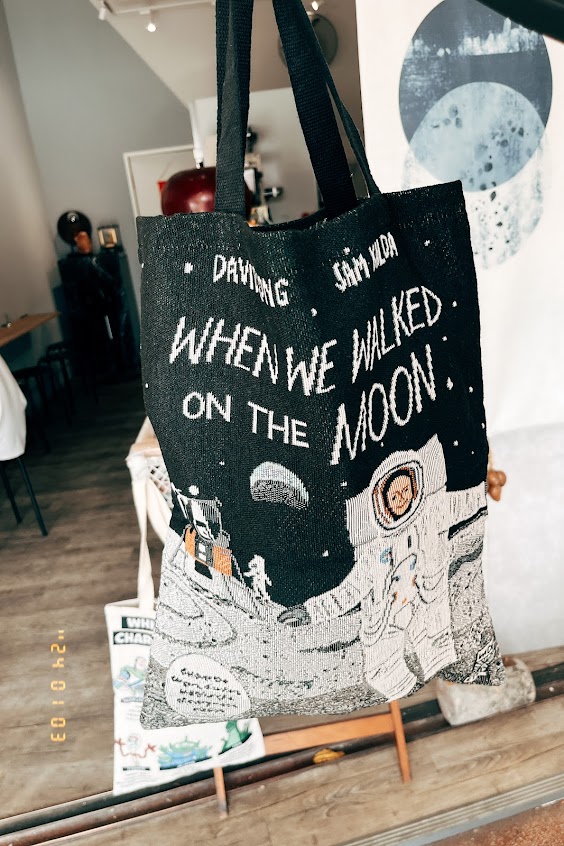 DAVID LONG SAM KALDA
WHEN WE WALKED
ON THE MOON
WH
CHARA
'24 01 03